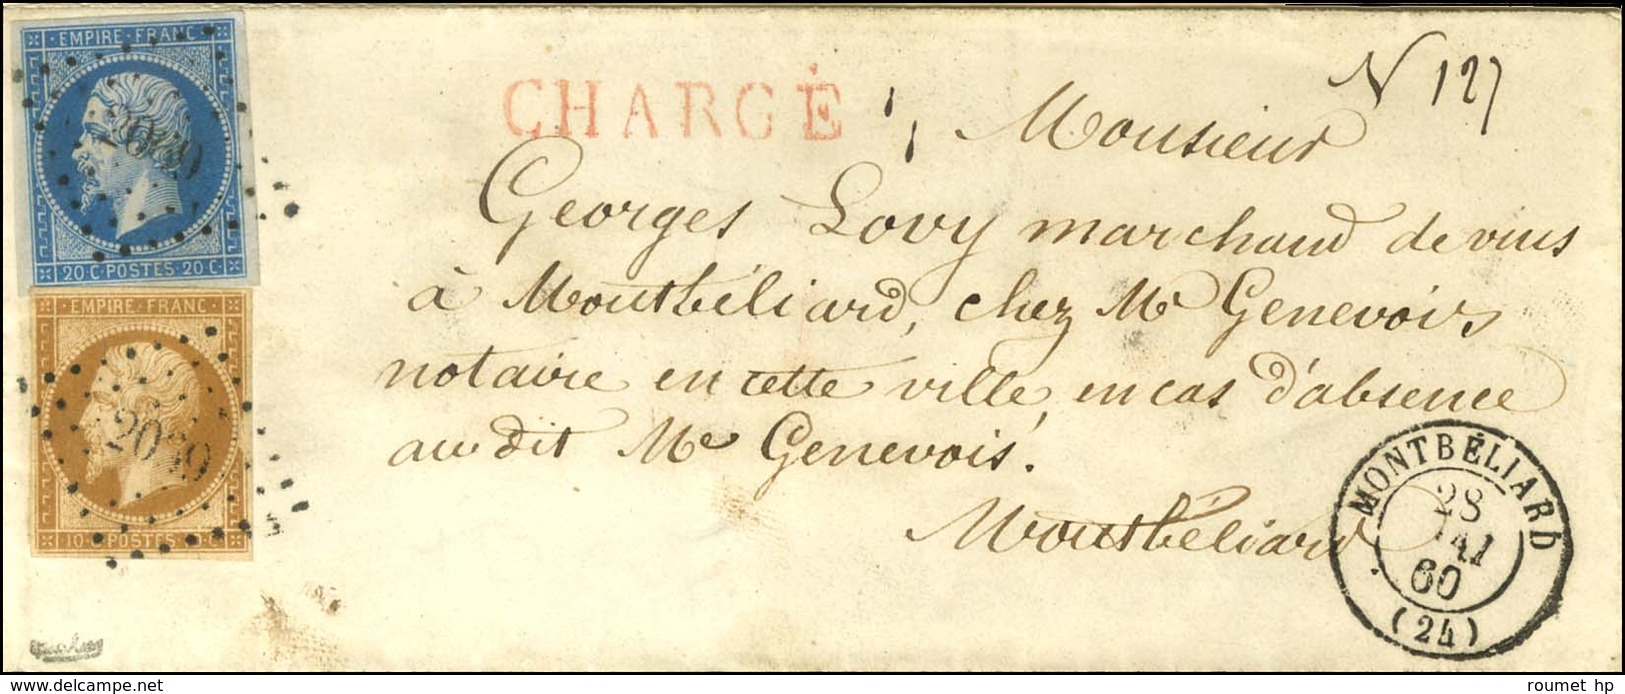 EMPIRE · FRANC ·
2079
20 · C · POSTES · 20 · C ·
EMPIRE · FRANC ·
2079
10 · C · POSTES · 10 · C ·
CHARGÉ
N 127
Monsieur
Georges Lovy marchand de vins
à Montbéliard, chez Me Genevois
notaire en cette ville, en cas d'absence
au dit Me Genevois.
Montbéliard
MONTBÉLIARD
28
MAI
60
(24)
www.delcampe.net
roumet hp